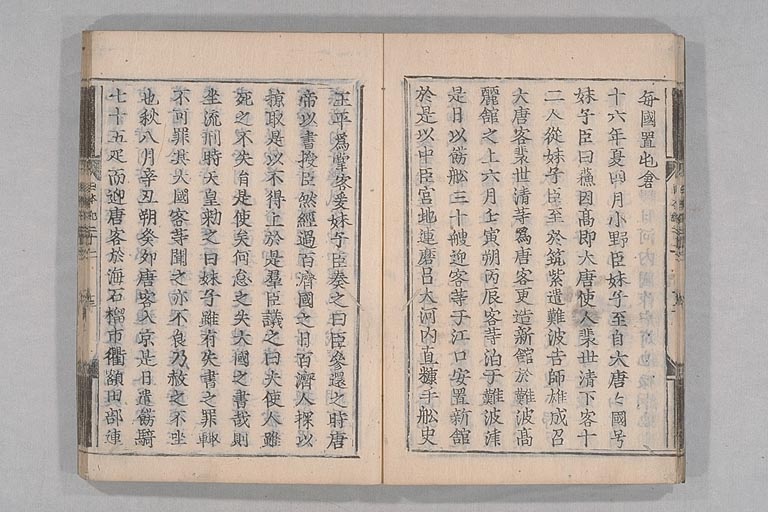 每國置屯倉
十六年夏四月小野臣妹子至自大唐〻國号
妹子臣曰蘇因高即大唐使人裴世清下客十
二人從妹子臣至於筑紫遣難波吉師雄成召
大唐客裴世清等爲唐客更造新館於難波髙
麗館之上六月壬寅朔丙辰客等泊于難波津
是日以餝舩三十艘迎客等于江口安置新館
於是以中臣宮地連磨呂大河内直糠手舩史
王平爲掌客爰妹子臣奏之曰臣參還之時唐
帝以書授臣然經過百濟國之日百濟人探以
掠取是以不得上於是羣臣議之曰夫使人雖
死之不失旨是使矣何怠之失大國之書哉則
坐流刑時天皇勅之曰妹子雖有失書之罪輙
不可罪其大國客等聞之亦不良乃赦之不坐
也秋八月辛丑朔癸卯唐客入京是日遣餝騎
七十五疋而迎唐客於海石榴市衢額田部連